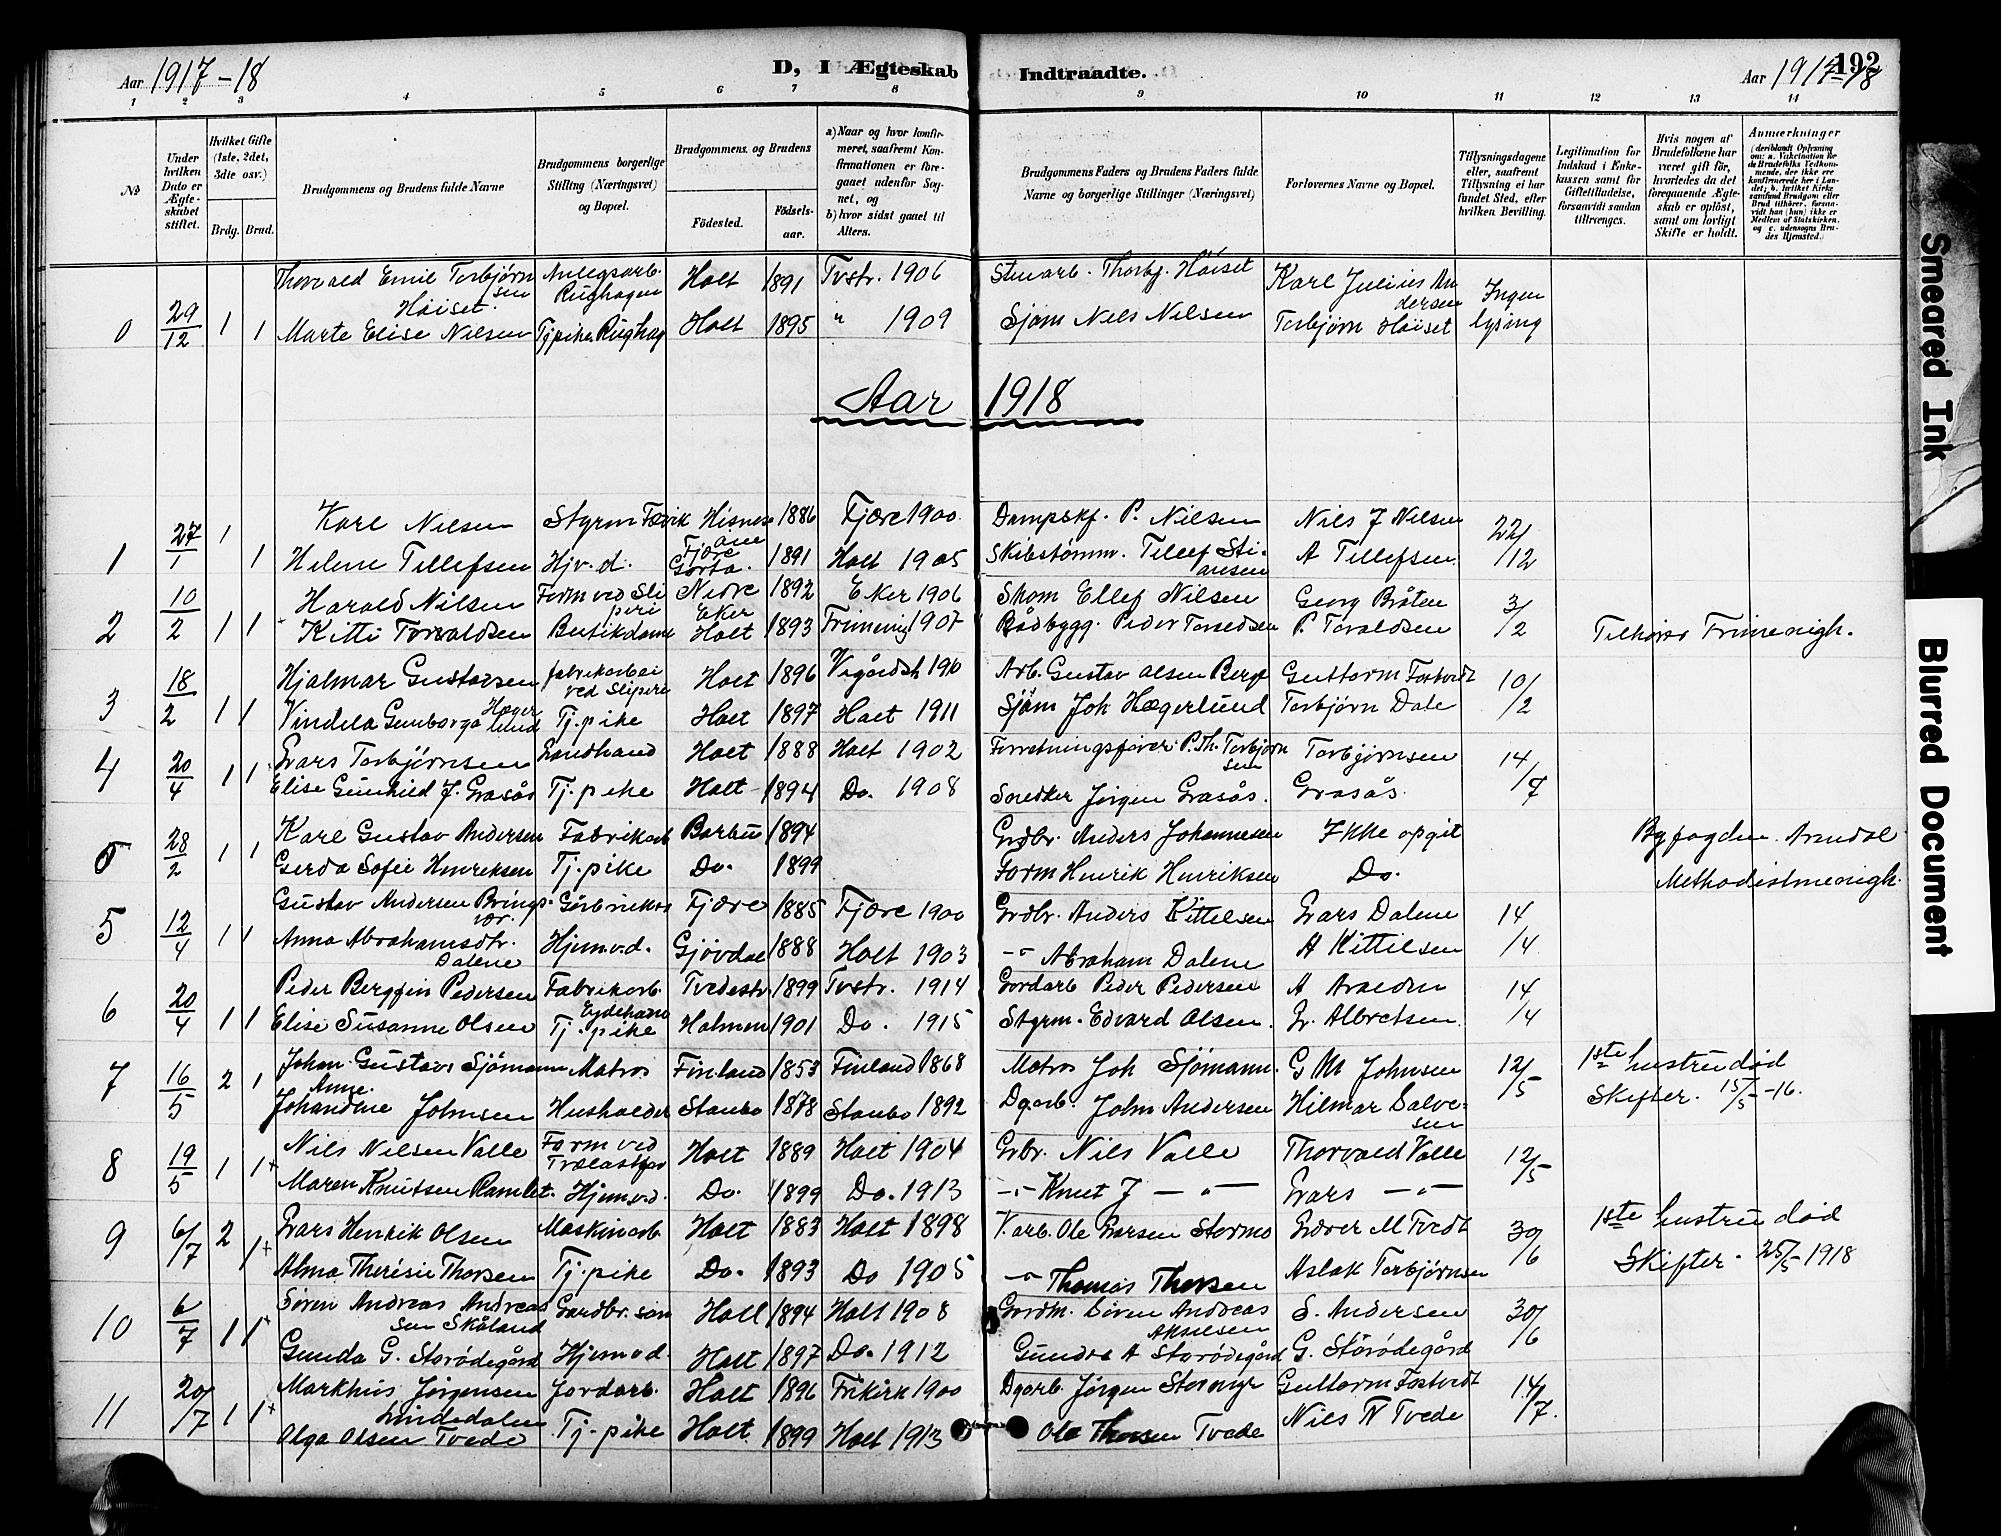 Aar 1917-18
D, I Ægteskab Indtraadte.
Aar 1917-18
192
1 2 3 4 5 6 7 8 9 10 11 12 13 14
No
Under hvilken Dato er Ægteskabet stiftet.
Hvilket Gifte (1ste, 2det, 3die osv.)
Brdg. Brud.
Brudgommens og Brudens fulde Navne
Brudgommens borgerlige Stilling (Næringsvei) og Bopæl.
Brudgommens og Brudens
Fødested.
Fødselsaar.
a) Naar og hvor konfirmeret, saafremt Konfirmationen er foregaaet udenfor Sognet, og
b) hvor sidst gaaet til Alters.
Brudgommens Faders og Brudens Faders fulde Navne og borgerlige Stillinger (Næringsvei)
Forlovernes Navne og Bopæl.
Tillysningsdagene eller, saafremt Tillysning ei har fundet Sted, efter hvilken Bevilling.
Legitimation for Indskud i Enkekassen samt for Giftetilladelse, forsaavidt saadan tiltrænges.
Hvis nogen af Brudefolkene har været gift før, hvorledes da det foregaaende Ægteskab er opløst, samt om lovligt Skifte er holdt.
Anmærkninger (deriblandt Oplysning om: a. Vakcination for de Brudefolks Vedkommende, der ikke ere konfirmerede her i Landet; b. hvilket Kirkesamfund Brudgom eller Brud tilhører, forsaavidt han (hun) ikke er Medlem af Statskirken, og c. udensogns Brudes Hjemsted.)
0 29/12 1 1 Thorvald Emil Torbjørnsen Høiset Anlegsarb. Rughagen Holt 1891 Tvstr. 1906 Stenarb. Thorbj. Höiset Karl Julius Andersen Ingen lysing
Marte Elise Nilsen Tjpike Rughag Holt 1895 " 1909 Sjøm Nils Nilsen Torbjørn Höiset
Aar 1918
1 27/1 1 1 Karl Nilsen Styrm Fævik Hisnes 1886 Fjære 1900 Dampskf. P. Nilsen Nils J Nilsen 22/12
Helene Tellefsen Hjv.d. 1891 Holt 1905 Skibstømm. Tellef Stiansen A Tellefsen
2 10/2 1 1 Harald Nilsen Form ved Sliperi Nedre Eker 1892 Eker 1906 Skom Ellef Nilsen Georg Bråten 3/2
Kitti Torvaldsen Butikdame Holt 1893 Frimenig 1907 Bådbygg. Peder P. Toraldsen Tilhører Frimenigh.
3 18/2 1 1 Hjalmar Gustavsen fabrikarbei ved Sliperi Holt 1896 Vegårdsh 1910 Arb. Gustav Olsen Berge Guttorm Fostvedt 10/2
Vindela Gunborga Hægerlund Tj.pike Holt 1897 Holt 1911 Sjöm Joh Hægerlund Torbjørn Dale
4 20/4 1 1 Lars Torbjørnsen Landhand Holt 1888 Holt 1902 Forretningsfører P.Th. Torbjørnsen Torbjørnsen 14/7
Elise Gunhild J. Grasås Tj.pike Holt 1894 Do. 1908 Snedker Jørgen Grasås. Grasås.
0 28/2 1 1 Karl Gustav Andersen Fabrikarb Barbu 1894 Grdbr. Anders Johannesen Ikke opgit Byfogden Arendal
Gerda Sofie Henriksen Tj.pike Do. 1899 Form Henrik Henriksen Do. Methodistmenigh.
5 12/4 1 1 Gustav Andersen Bringsvær. Fjære 1885 Fjære 1900 Grdbr. Anders Kittelsen Lars Dalene 14/4
Anna Abrahamsdtr. Dalene Hjemv.d. Gjövdal 1888 Holt 1903 -"- Abraham Dalene A Kittilsen
6 20/4 1 1 Peder Bergfin Pedersen Fabrikarb. Eydehavn Tvedestr. 1899 Tvstr. 1914 Jordarb Peder Pedersen 14/4
Elise Susanne Olsen Tj.pike Holmen 1901 Do. 1915 Styrm. Edvard Olsen. L. Albretsen.
7 16/5 2 1 Johan Gustavs Sjömann Matros Finland 1853 Finland 1868 Matros Joh Sjömann. G M Johnsen 12/5 1ste hustru død
Anne Johandine Johnsen Husholder Staubo 1878 Staubo 1892 Dgarb. John Andersen Hilmar Salvesen Skifter. 15/5-16.
8 19/5 1 1+ Nils Nilsen Valle Form ved Holt 1889 Holt 1904 Grbr. Nils Valle Thorvald Valle 12/5
Maren Knutsen Ramlet. Hjemv.d. Do. 1899 Do. 1913 -"- Knut J -"- Lars -"-
9 6/7 2 1+ Lars Henrik Olsen Maskinarb Holt 1883 Holt 1898 V.arb. Ole Larsen Stormo M Tvedt 30/6 1ste hustru død
Alma Theresie Thorsen Tj.pike Do. 1893 Do 1905 -"- Thomas Thorsen Aslak Torbjørnsen Skifter. 25/5-1918
10 6/7 1 1+ Søren Andreas Andreassen Skåland Gardbr. søn Holt 1894 Holt 1908 Gardm. Søren Andreas Akselsen S. Andersen 30/6
Gunda G. Storødegård Hjemvd. Holt 1897 Do. 1912 A Storødegård G. Störödegård
11 20/7 1 1+ Markhus Jørgensen Lindedalen Jordarb. Holt 1896 Frikirk 1900 Dgarb. Jørgen Stormyr Guttorm Fostvedt 14/7.
Olga Olsen Tvede Tj.pike Holt 1899 Holt 1913 Ole Thorsen Tvede Nils N Tvede
Smeared Ink
Blurred Document